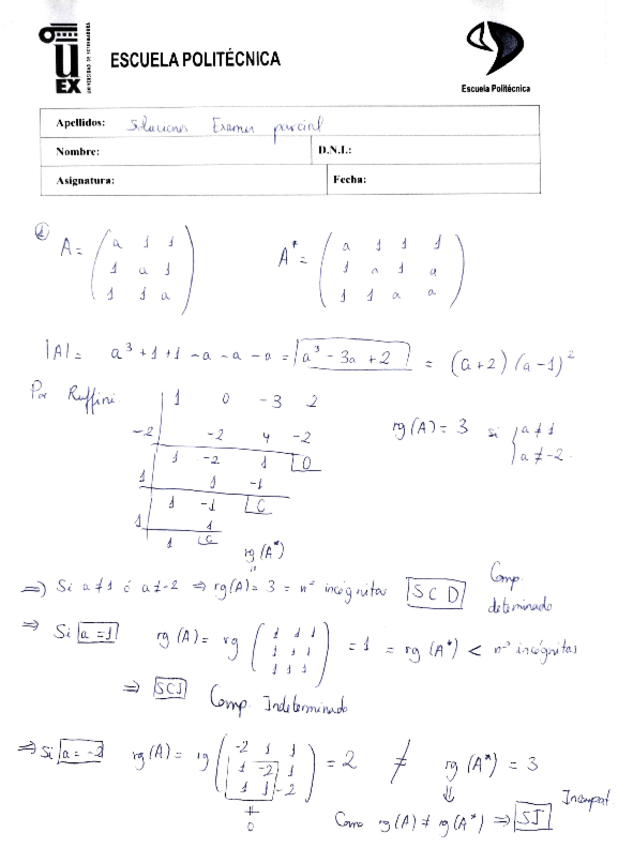 UEX
UNIVERSIDAD DE EXTREMADURA
ESCUELA POLITÉCNICA
Escuela Politécnica
Apellidos: Soluciones Examen parcial
Nombre: D.N.I.:
Asignatura: Fecha:
①
A = ( a 1 1
1 a 1
1 1 a )
A* = ( a 1 1 1
1 a 1 a
1 1 a a )
|A| = a³ + 1 + 1 - a - a - a = a³ - 3a + 2 = (a+2) (a-1)²
Por Ruffini
1 0 -3 2
-2 -2 4 -2
1 -2 1 0
1 1 -1
1 -1 0
1 1
1 0
rg(A) = 3 si { a ≠ 1
a ≠ -2.
rg(A*)
=> Si a ≠ 1 ó a ≠ -2 => rg(A) = 3 = nº incógnitas SCD Comp. determinado
=> Si a = 1 rg(A) = rg ( 1 1 1
1 1 1
1 1 1 ) = 1 = rg(A*) < nº incógnitas
=> SCI Comp. Indeterminado
=> Si a = -2 rg(A) = rg ( -2 1 1
1 -2 1
1 1 -2 ) = 2 ≠ rg(A*) = 3
≠
0
⇓
Como rg(A) ≠ rg(A*) => SI Incompat.